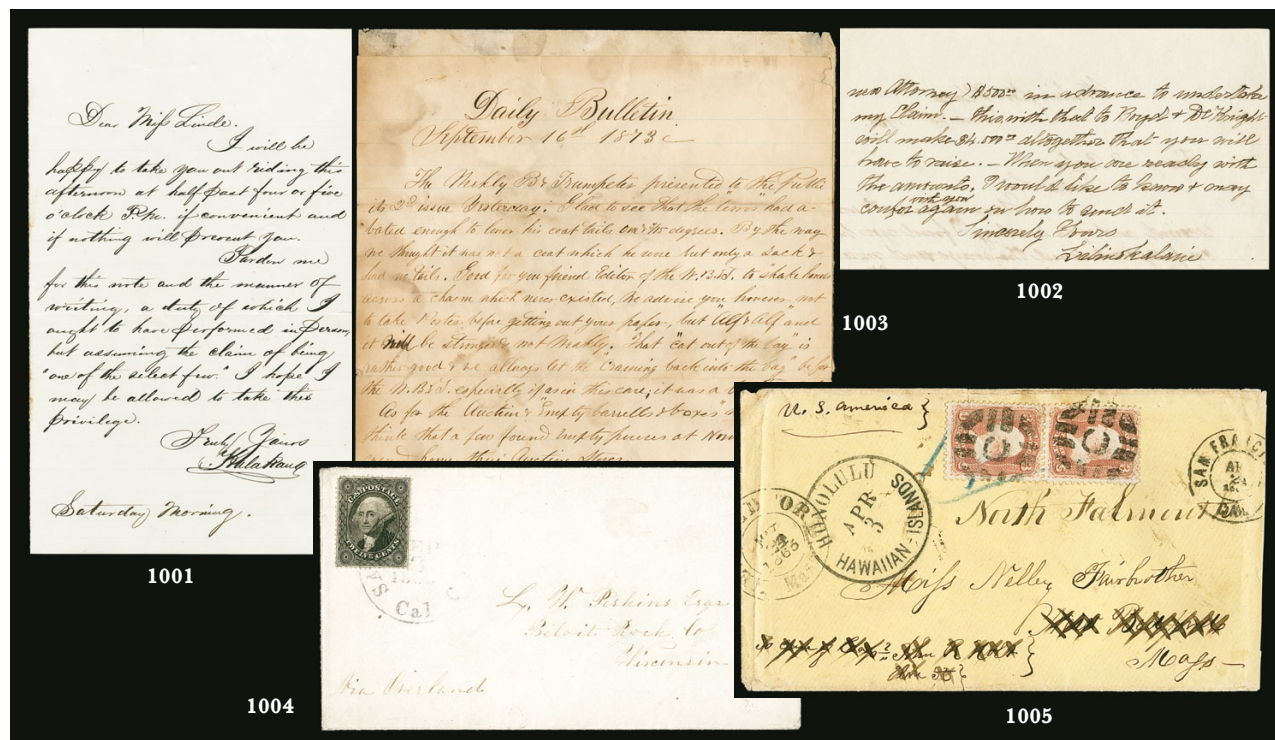 Dear Miss Linde.
I will be
happy to take you out riding this
afternoon at half past four or five
o'clock P.M. if convenient and
if nothing will prevent you.
Pardon me
for this note and the manner of
writing, a duty of which I
ought to have performed in Person,
but assuming the claim of being
"one of the select few." I hope I
may be allowed to take this
privilege.
Truly Yours
Kalakaua
Saturday Morning.
1001
Daily Bulletin
September 16th 1873
The Weekly B & Trumpeter presented to the Public
its 2d issue Yesterday. I had to see that the had a-
bated enough to his coat tails degrees. By the way
we thought it was not a coat which he wore but only a Sack &
had no tails. Good for you friend Editor of the W.B.&T. to shake hands
across a charm which never existed, we advise you however not
to take before getting out your paper, but "Alf & Alf" and
it will be stronger & not Mashy. That "cat out of the bag" is
rather good & we allways let the "Craming back into the bag" be for
the W.B.&T. especially if as in this case, it was a
for the Auction "Empty barrells & boxes"
think that a few found Empty purses at
their Auction
1003
Attorney) $500.00 in advance to undertake
my Claim. - this with that to Boyd & De Knight
will make $4,500.00 altogether that you will
have to raise. - When you are ready with
the amounts. I would like to know & may
confer with you again on how to send it.
Sincerely Yours
Liliuokalani
1002
U.S. POSTAGE
TWELVE CENTS
Cal
L. W. Perkins Esqr
Beloit Rock Co
Wisconsin
Via Overland
1004
U. S. America
HONOLULU
APR
3
HAWAIIAN ISLANDS
SAN FRANCI
North Falmouth
Miss Nelley Fairbrother
Mass
1005